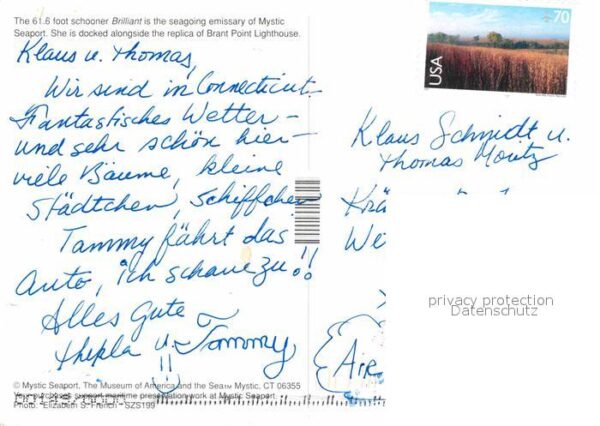 The 61.6 foot schooner Brilliant is the seagoing emissary of Mystic
Seaport. She is docked alongside the replica of Brant Point Lighthouse.
Klaus u. Thomas,
Wir sind in Connecticut.
Fantastisches Wetter –
und sehr schön hier –
viele Bäume, kleine
Städtchen, Schiffchen
Tammy fährt das
Auto, ich schaue zu!!
Alles Gute
Thekla u. Tammy
© Mystic Seaport, The Museum of America and the Sea™ Mystic, CT 06355
Your purchases support maritime preservation work at Mystic Seaport.
Photo: Elizabeth S. French - SZS199
70
USA
Klaus Schmidt u.
Thomas Moritz
Krä
We
privacy protection
Datenschutz
AIR